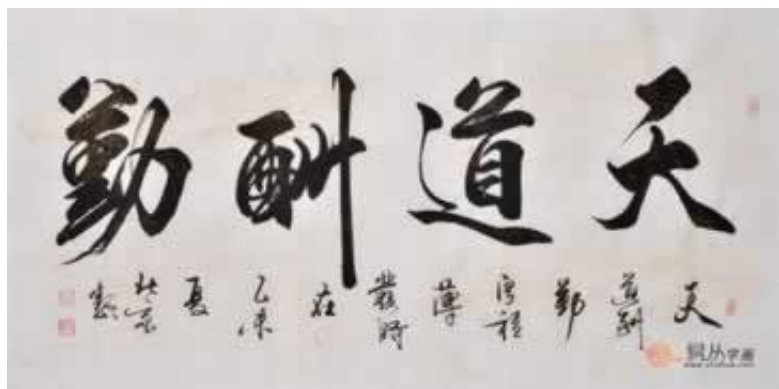 天道酬勤
天道酬勤厚積薄發時在乙未夏
字画